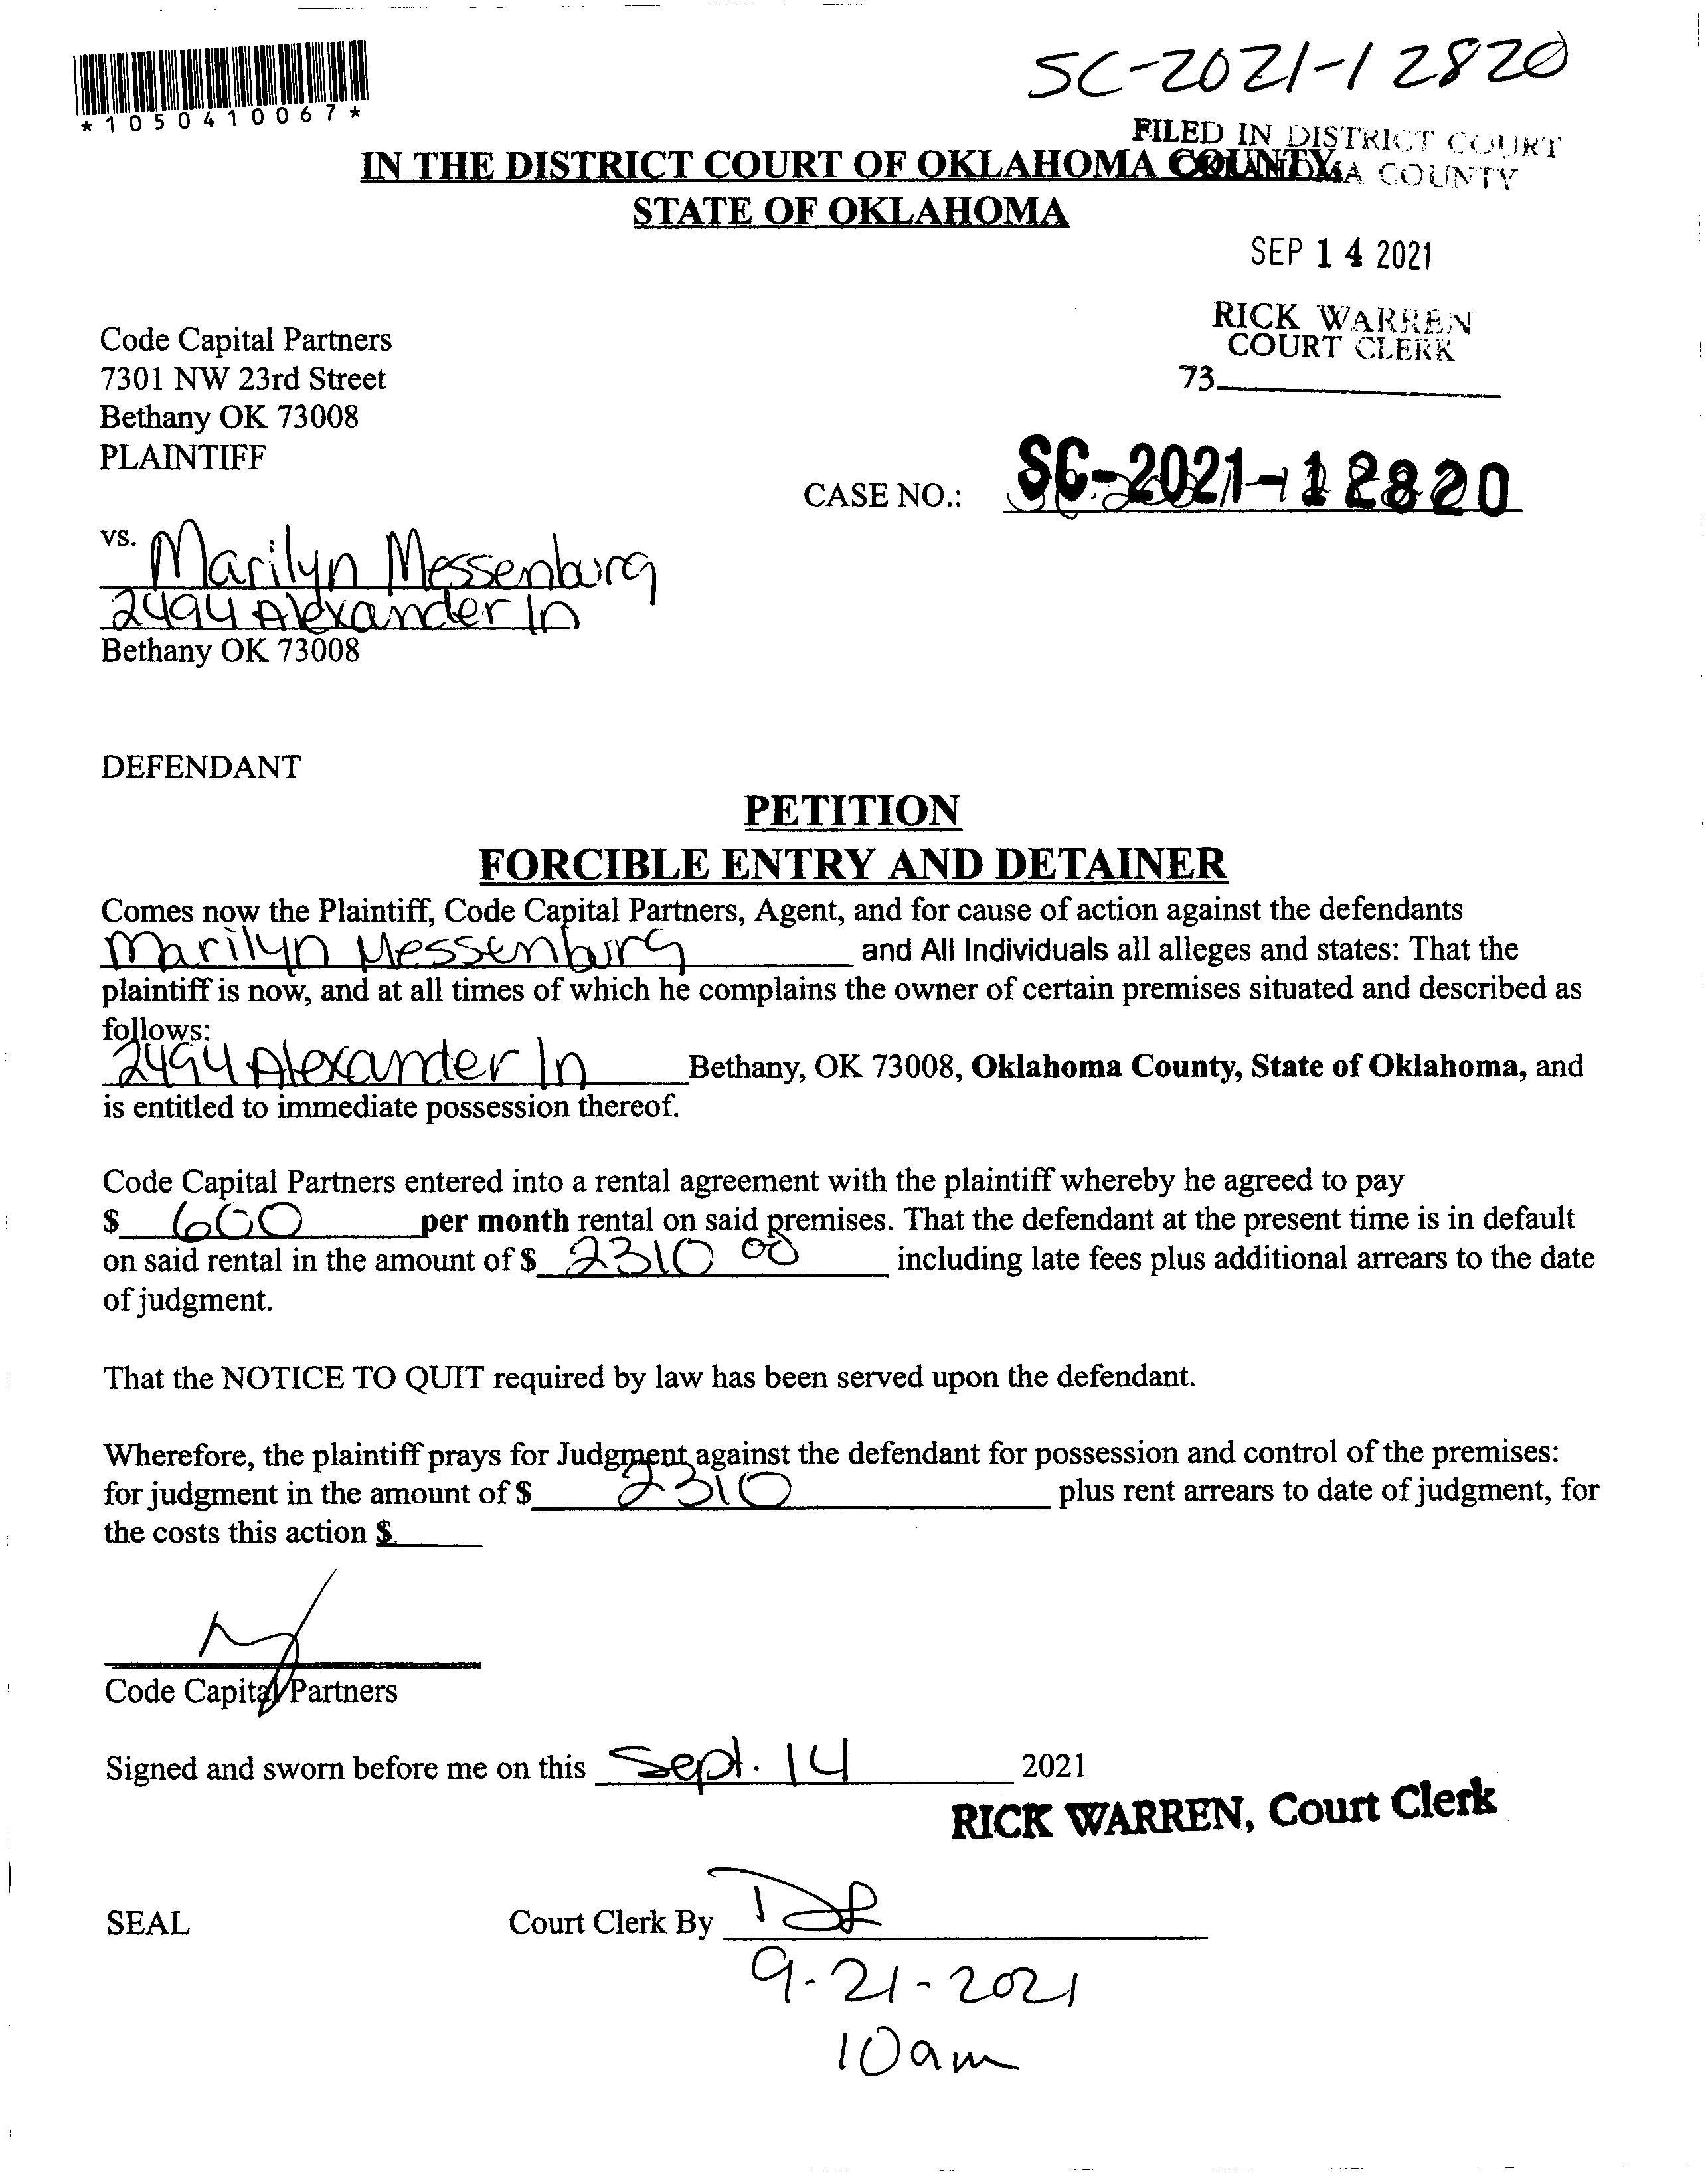 SC-2021-12820
*1050410067*
FILED IN DISTRICT COURT
IN THE DISTRICT COURT OF OKLAHOMA COUNTY
OKLAHOMA COUNTY
STATE OF OKLAHOMA
SEP 14 2021
RICK WARREN
COURT CLERK
73
Code Capital Partners
7301 NW 23rd Street
Bethany OK 73008
PLAINTIFF
CASE NO.: SC-2021-12820
vs. Marilyn Messenburg
2494 Alexander ln
Bethany OK 73008
DEFENDANT
PETITION
FORCIBLE ENTRY AND DETAINER
Comes now the Plaintiff, Code Capital Partners, Agent, and for cause of action against the defendants
Marilyn Messenburg and All Individuals all alleges and states: That the
plaintiff is now, and at all times of which he complains the owner of certain premises situated and described as
follows:
2494 Alexander ln Bethany, OK 73008, Oklahoma County, State of Oklahoma, and
is entitled to immediate possession thereof.
Code Capital Partners entered into a rental agreement with the plaintiff whereby he agreed to pay
$ 600 per month rental on said premises. That the defendant at the present time is in default
on said rental in the amount of $ 2310 00 including late fees plus additional arrears to the date
of judgment.
That the NOTICE TO QUIT required by law has been served upon the defendant.
Wherefore, the plaintiff prays for Judgment against the defendant for possession and control of the premises:
for judgment in the amount of $ 2310 plus rent arrears to date of judgment, for
the costs this action $
Code Capital Partners
Signed and sworn before me on this Sept. 14 2021
RICK WARREN, Court Clerk
SEAL Court Clerk By
9-21-2021
10am